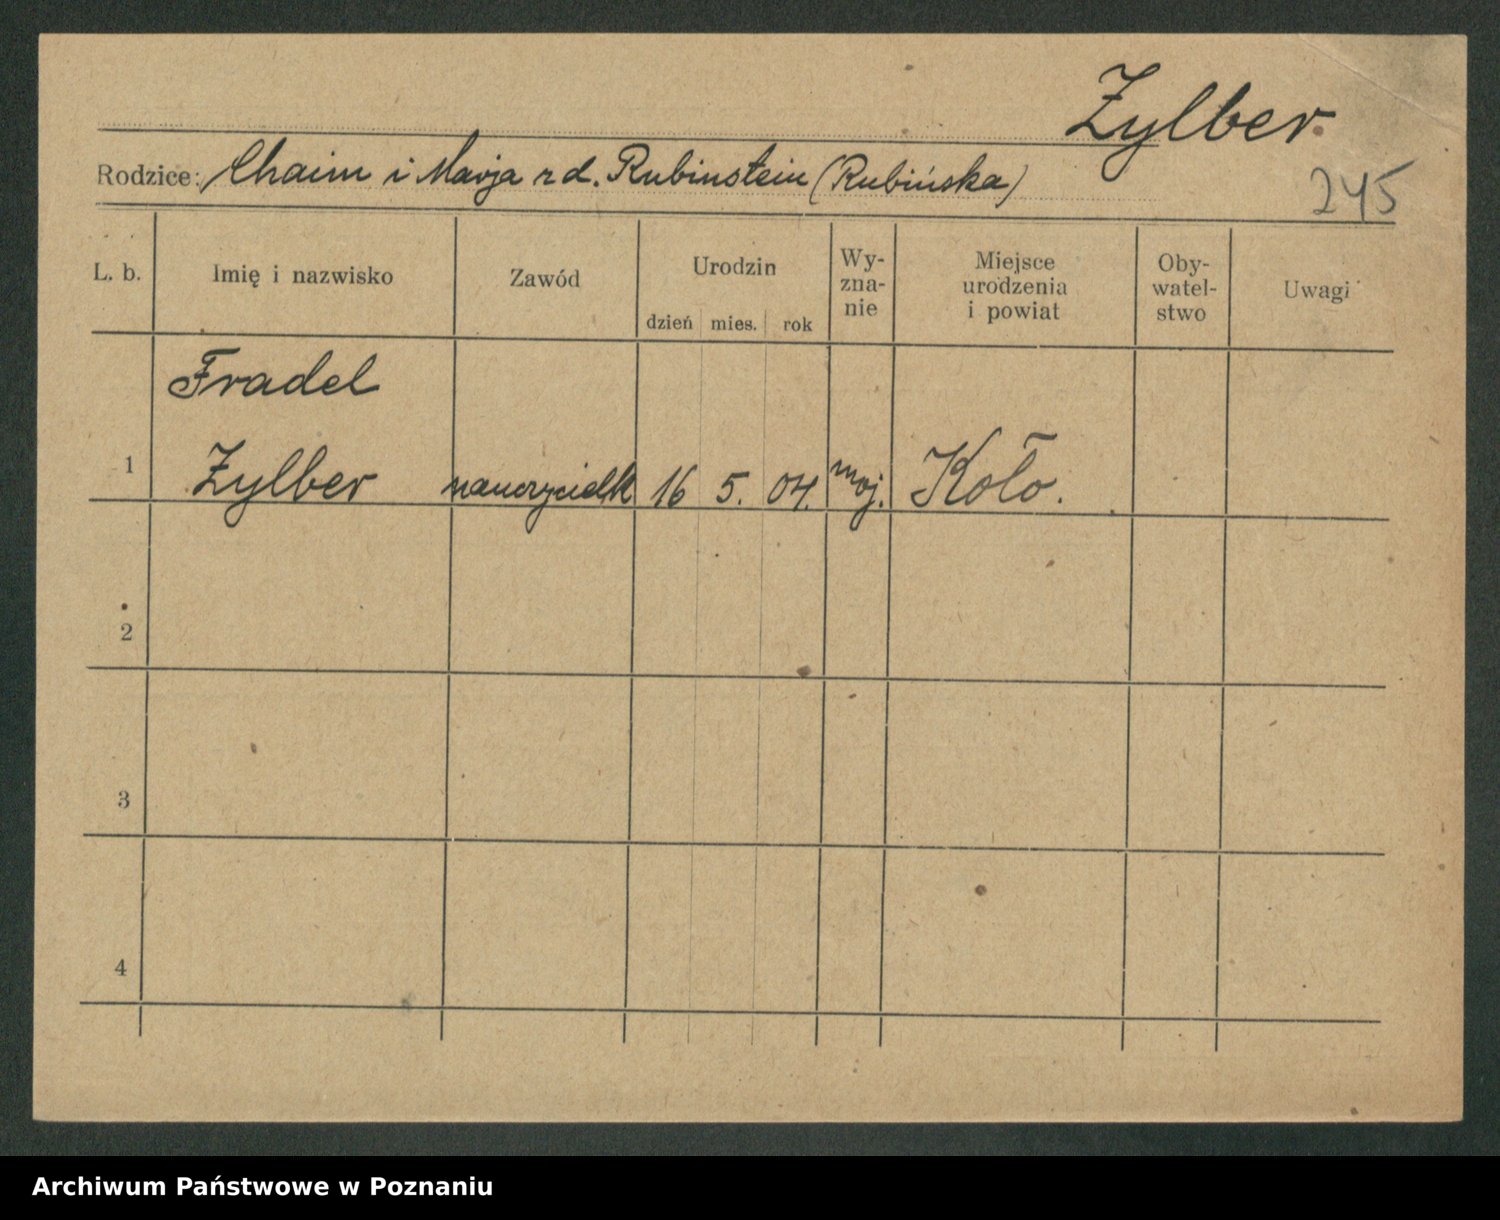 Zylber
Rodzice: Chaim i Marja z d. Rubinstein (Rubińska)
245
L. b.
Imię i nazwisko
Zawód
Urodzin
dzień mies. rok
Wy-
zna-
nie
Miejsce
urodzenia
i powiat
Oby-
watel-
stwo
Uwagi
Fradel
1 Zylber nauczycielk 16 5. 04. moj. Koło.
2
3
4
Archiwum Państwowe w Poznaniu